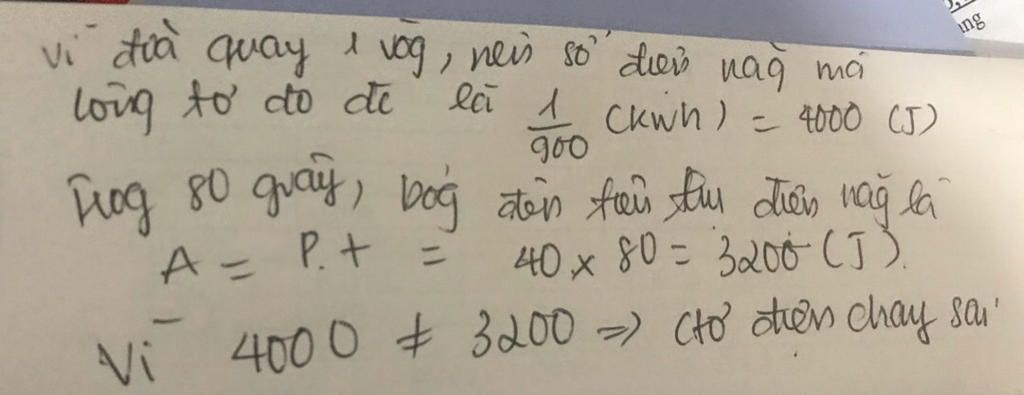 ng
Vì đĩa quay 1 vòg, nên số điện năg mà
công tơ đo đc là 1/900 (kwh) = 4000 (J)
Trog 80 giây, bóg đèn tiêu thụ điện năg là
A = P.t = 40 x 80 = 3200 (J).
Vì 4000 ≠ 3200 => ctơ điện chạy sai